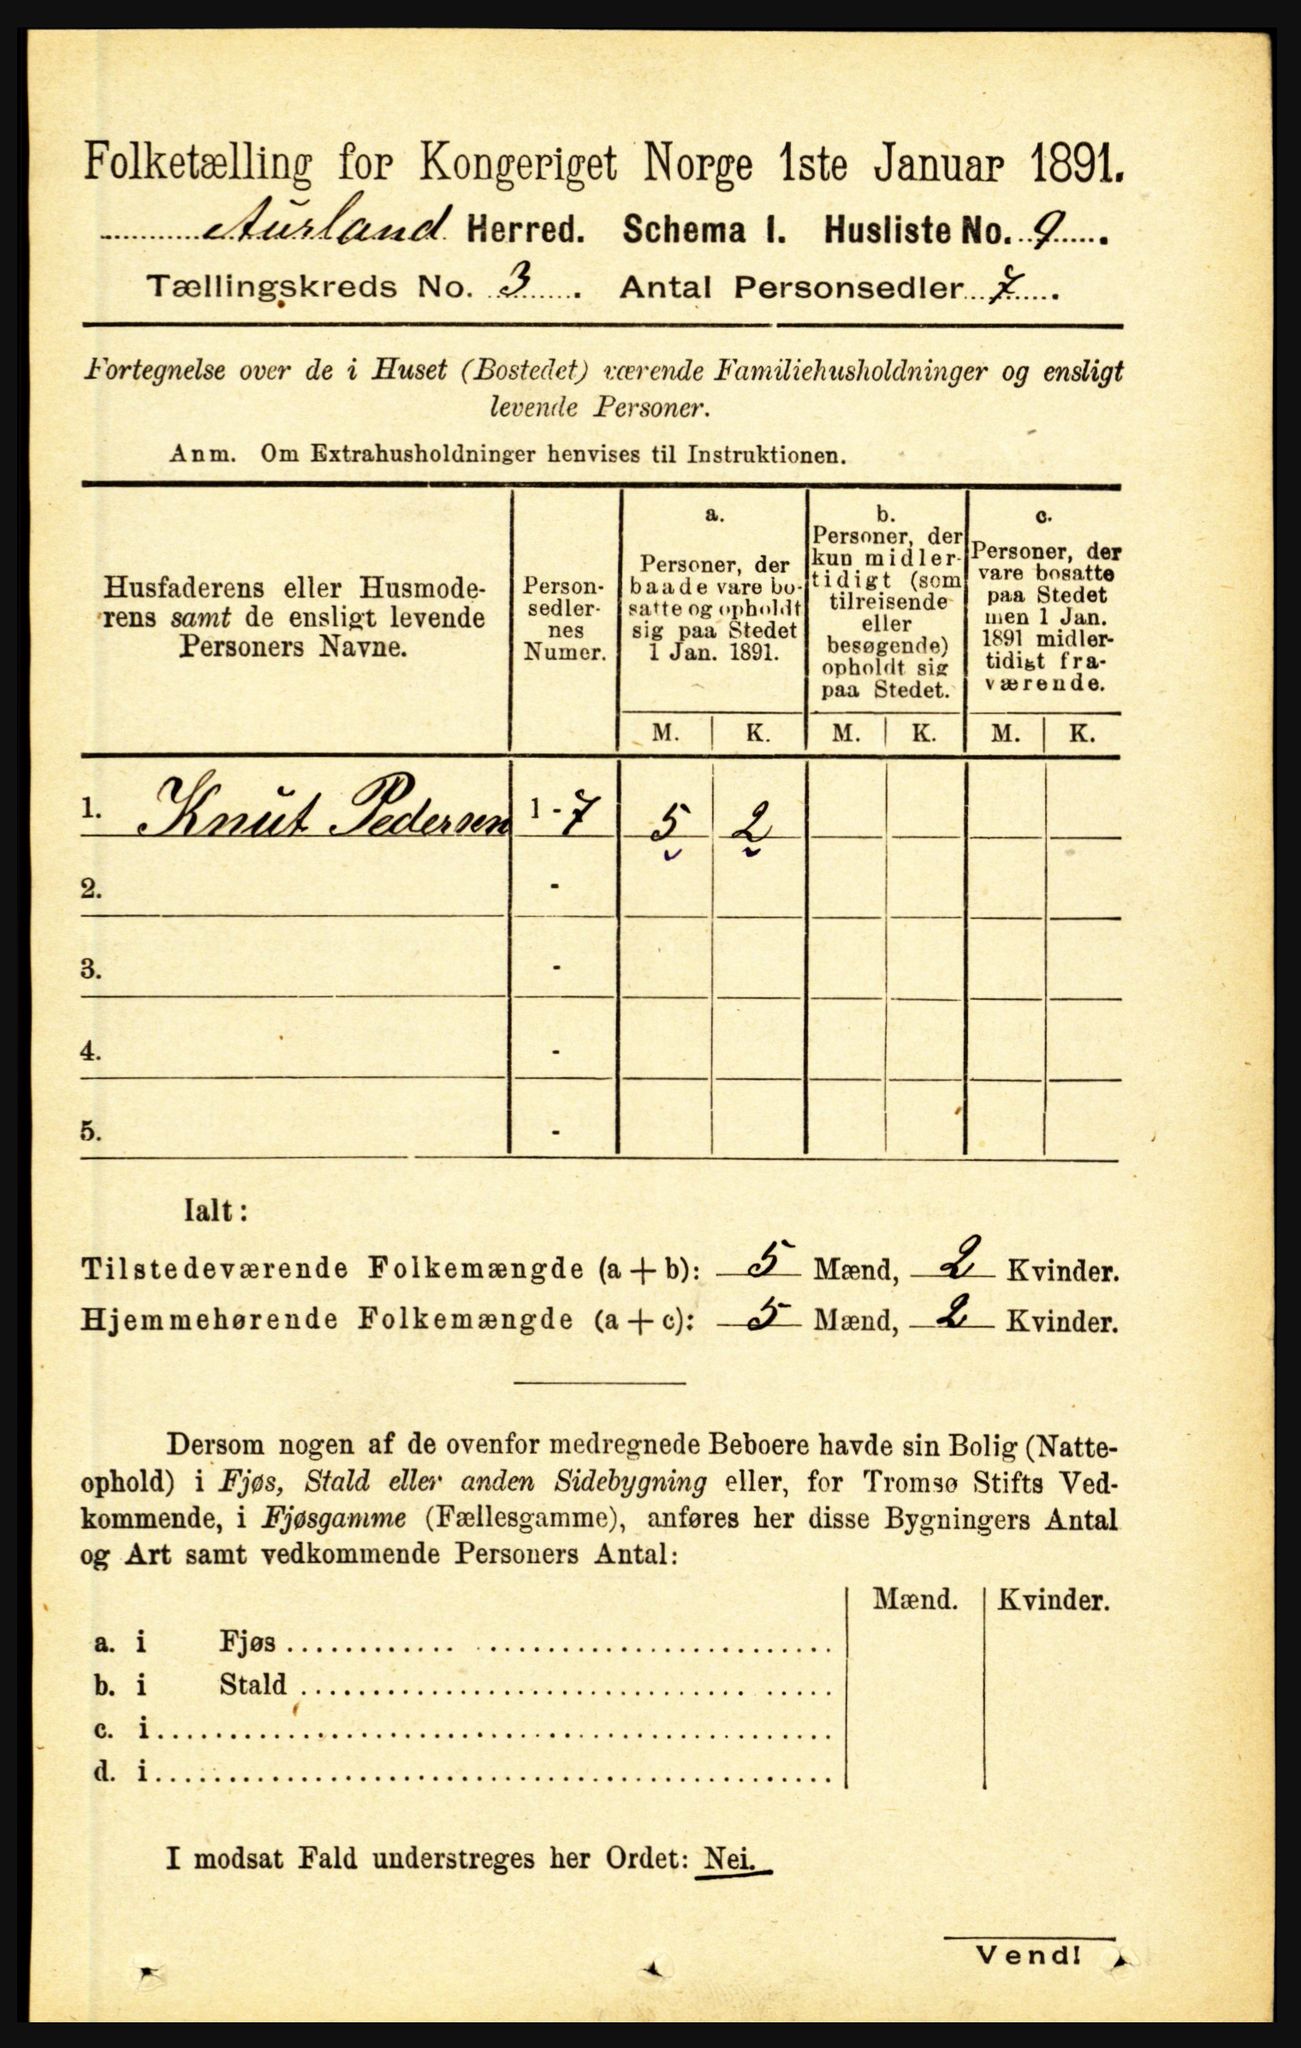 Folketælling for Kongeriget Norge 1ste Januar 1891.
Aurland Herred. Schema I. Husliste No. 9.
Tællingskreds No. 3. Antal Personsedler 7.
Fortegnelse over de i Huset (Bostedet) værende Familiehusholdninger og ensligt
levende Personer.
Anm. Om Extrahusholdninger henvises til Instruktionen.
Husfaderens eller Husmode-
rens samt de ensligt levende
Personers Navne.
Person-
sedler-
nes
Numer.
a.
Personer, der
baade vare bo-
satte og opholdt
sig paa Stedet
1 Jan. 1891.
b.
Personer, der
kun midler-
tidigt (som
tilreisende
eller
besøgende)
opholdt sig
paa Stedet.
c.
Personer, der
vare bosatte
paa Stedet
men 1 Jan.
1891 midler-
tidigt fra-
værende.
M. K. M. K. M. K.
1. Knut Pedersen 1-7 5 2
2. -
3. -
4. -
5. -
Ialt:
Tilstedeværende Folkemængde (a+b): 5 Mænd, 2 Kvinder.
Hjemmehørende Folkemængde (a+c): 5 Mænd, 2 Kvinder.
Dersom nogen af de ovenfor medregnede Beboere havde sin Bolig (Natte-
ophold) i Fjøs, Stald eller anden Sidebygning eller, for Tromsø Stifts Ved-
kommende, i Fjøsgamme (Fællesgamme), anføres her disse Bygningers Antal
og Art samt vedkommende Personers Antal:
Mænd. Kvinder.
a. i Fjøs
b. i Stald
c. i
d. i
I modsat Fald understreges her Ordet: Nei.
Vend!